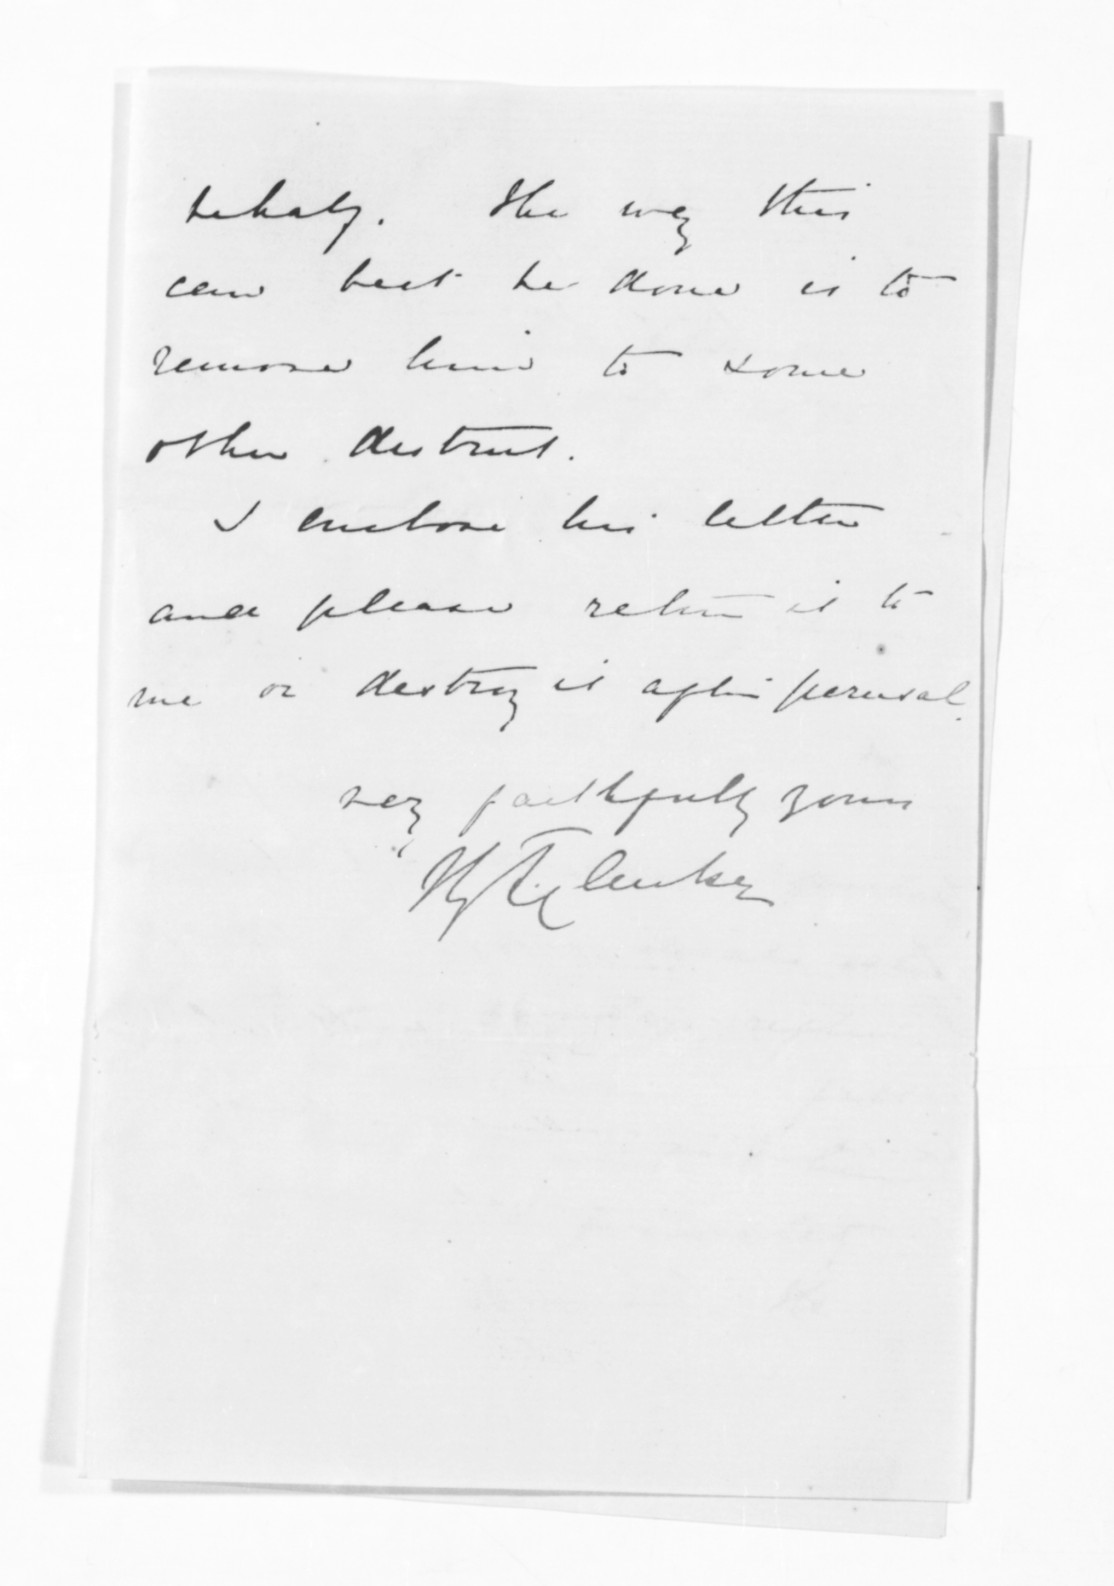 behalf. The way this
can best be done is to
remove him to some
other district.
I enclose his letter
and please return it to
me or destroy it after perusal.
very faithfully yours
Hy T. Clarke